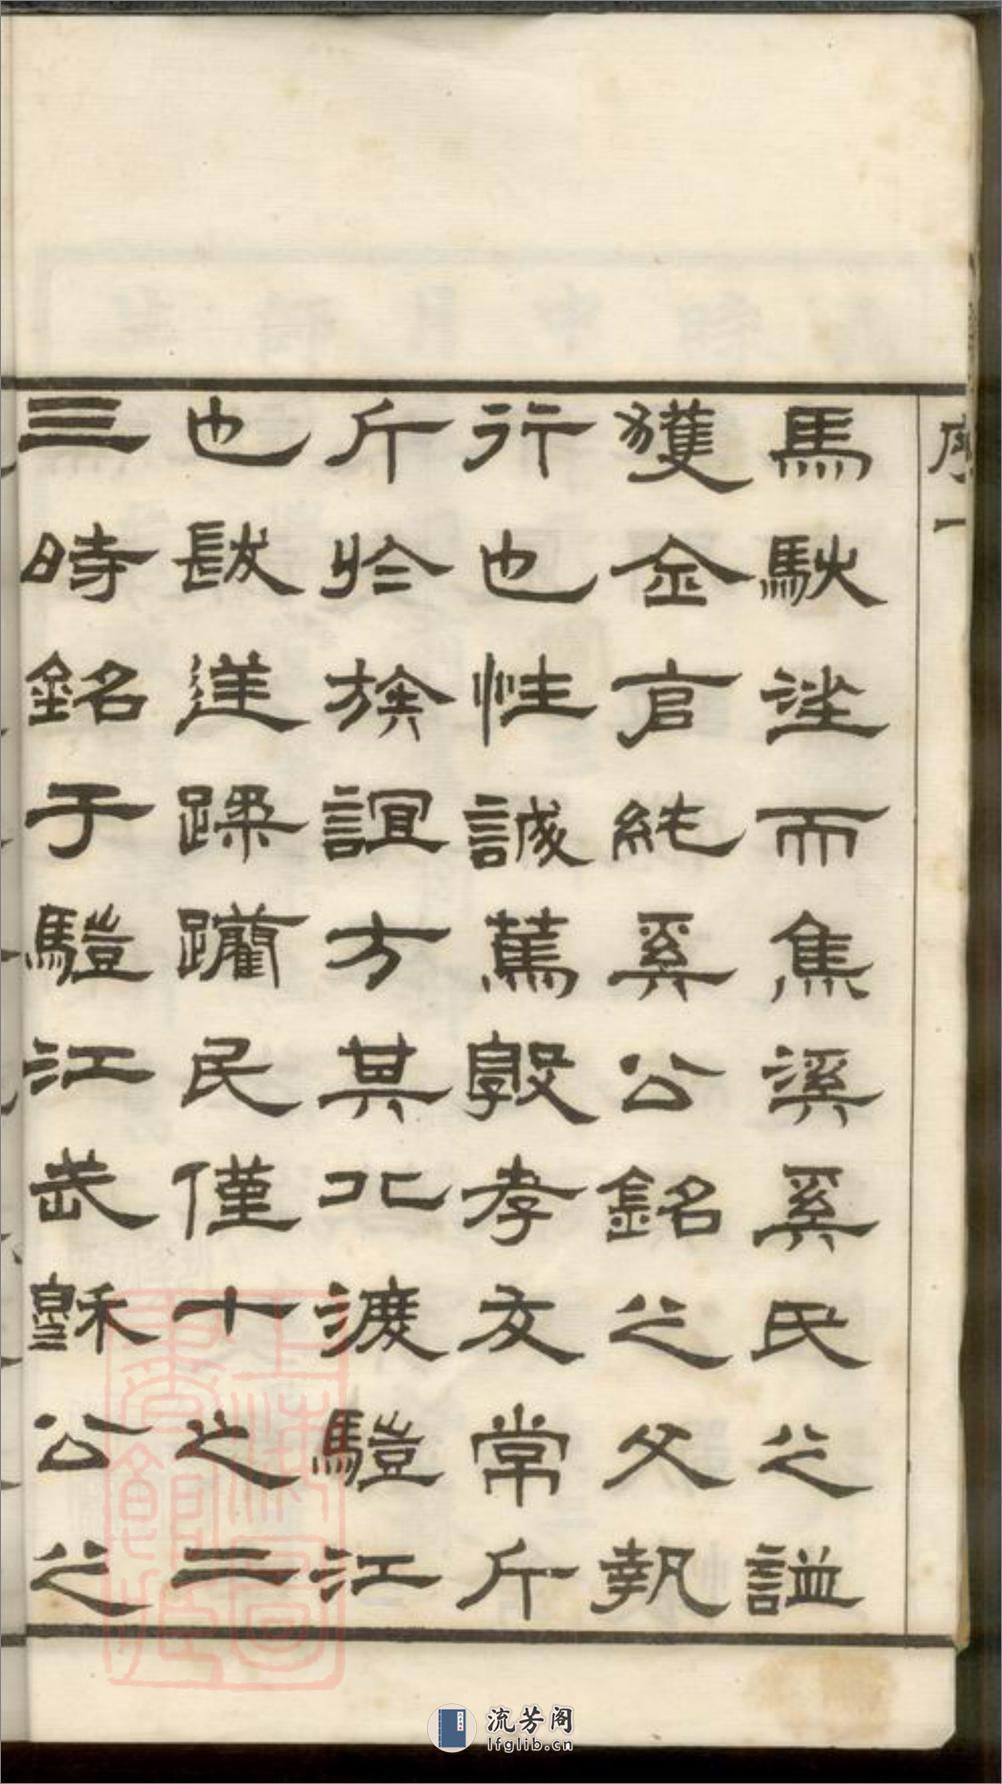 序一
馬馱逆而焦溪奚民之謚
獲金官純奚公銘之父執
行也性誠篤毅孝友常斤
斤於族誼方其北渡驊江
也跋送躁躪民僅十之二
三時銘于驊江武穌公之
流芳阁
lfglib.cn